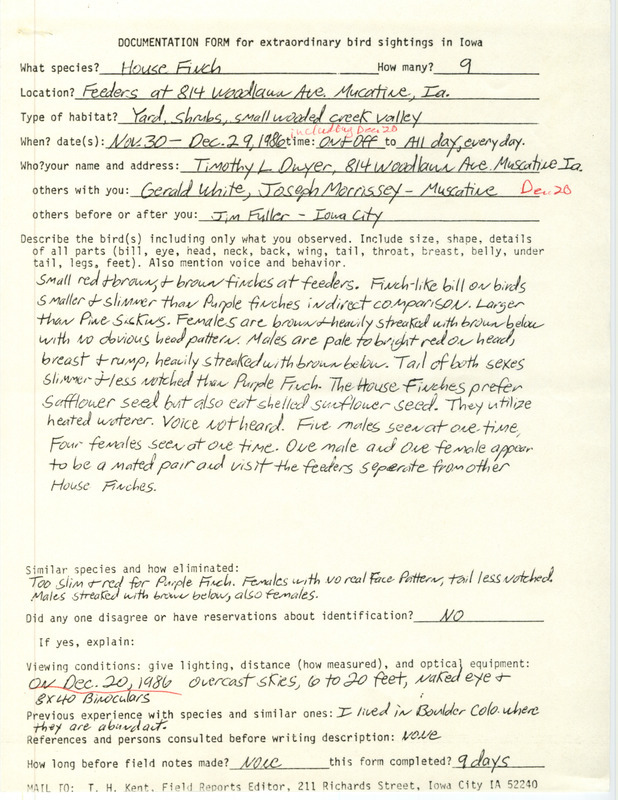 DOCUMENTATION FORM for extraordinary bird sightings in Iowa
What species? House Finch How many? 9
Location? Feeders at 814 Woodlawn Ave. Mucatine, Ia.
Type of habitat? Yard, shrubs, small wooded creek valley
including Dec. 20
When? date(s): Nov. 30 - Dec. 29, 1986 time: On + Off to All day, every day.
Who? your name and address: Timothy L Dwyer, 814 Woodlawn Ave. Muscatine Ia.
others with you: Gerald White, Joseph Morrissey - Muscatine Dec. 20
others before or after you: Jim Fuller - Iowa City
Describe the bird(s) including only what you observed. Include size, shape, details
of all parts (bill, eye, head, neck, back, wing, tail, throat, breast, belly, under
tail, legs, feet). Also mention voice and behavior.
Small red + brown, + brown finches at feeders. Finch-like bill on birds
smaller + slimmer than Purple finches in direct comparison. Larger
than Pine Siskins. Females are brown + heavily streaked with brown below
with no obvious head pattern. Males are pale to bright red on head,
breast + rump, heavily streaked with brown below. Tail of both sexes
slimmer + less notched than Purple Finch. The House Finches prefer
safflower seed but also eat shelled sunflower seed. They utilize
heated waterer. Voice not heard. Five males seen at one time,
Four females seen at one time. One male and one female appear
to be a mated pair and visit the feeders seperate from other
House Finches.
Similar species and how eliminated:
Too slim + red for Purple Finch. Females with no real Face Pattern, tail less notched.
Males streaked with brown below, also females.
Did any one disagree or have reservations about identification? NO
If yes, explain:
Viewing conditions: give lighting, distance (how measured), and optical equipment:
On Dec. 20, 1986 overcast skies, 6 to 20 feet, naked eye +
8x40 Binoculars
Previous experience with species and similar ones: I lived in Boulder Colo. where
they are abundant.
References and persons consulted before writing description: None
How long before field notes made? None this form completed? 9 days
MAIL TO: T. H. Kent, Field Reports Editor, 211 Richards Street, Iowa City IA 52240